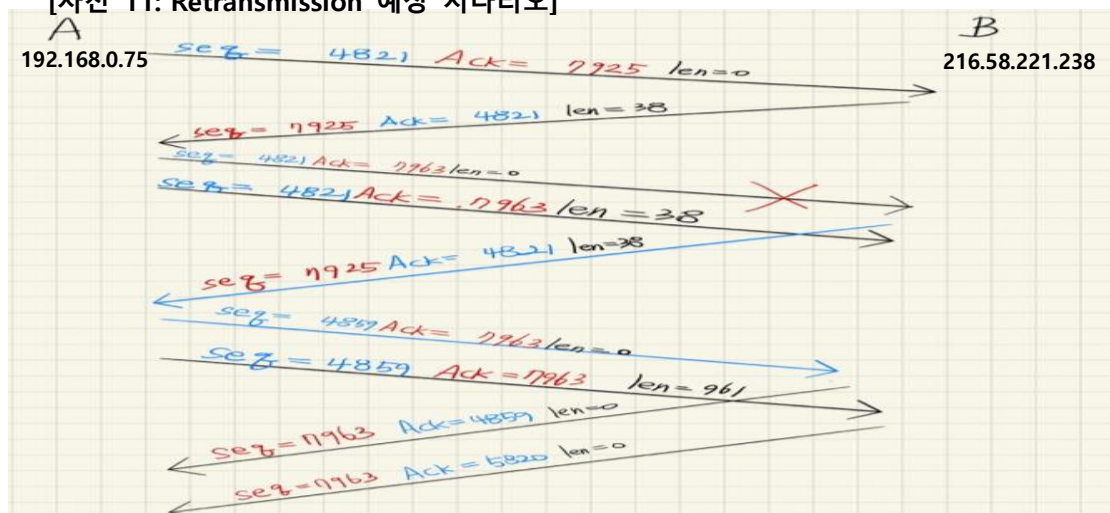 [사진 11: Retransmission 예상 시나리오]
A
B
192.168.0.75
216.58.221.238
seq = 4821 Ack = 7925 len=0
seq = 7925 Ack = 4821 len = 38
seq = 4821 Ack = 7963 len = 0
seq = 4821 Ack = 7963 len = 38
seq = 7925 Ack = 4821 len=38
seq = 4859 Ack = 7963 len = 0
seq = 4859 Ack = 7963 len = 961
seq = 7963 Ack = 4859 len=0
seq = 7963 Ack = 5820 len=0